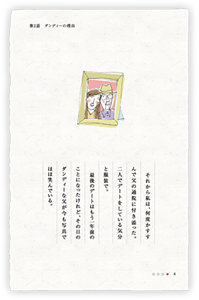 第2話　ダンディーの理由
それから私は、何度かすす
んで父の通院に付き添った。
二人でデートをしている気分
と服装で。
最後のデートはもう一年前の
ことになったけれど、その日の
ダンディーな父が今も写真で
ほほ笑んでいる。
4